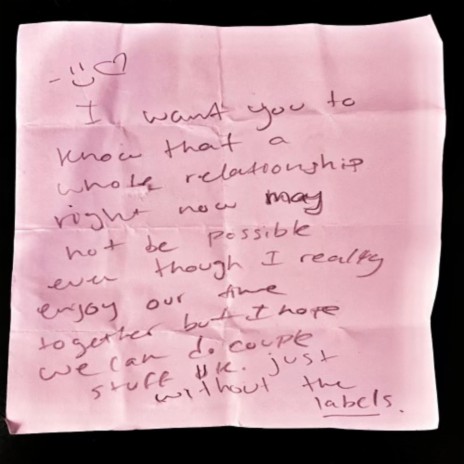 - :) ♡
I want you to
know that a
whole relationship
right now may
not be possible
even though I really
enjoy our time
together but I hope
we can do couple
stuff uk. just
without the
labels.